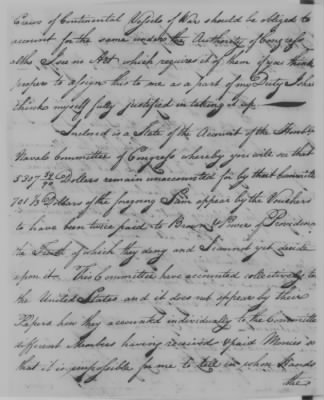 Crews of Continental Vessels of War should be obliged to
account for the same under the Authority of Congress
altho I see no Act which requires it of them if you think
proper to assign this to me as a part of my Duty I shall
think myself fully justified in taking it up.
Inclosed is a State of the Account of the Honble
Naval Committee of Congress whereby you will see that
5307 Dollars remain unaccounted for by that Committee
Dollars of the foregoing Sum appear by the Vouchers
to have been twice paid to of Providence
the Truth of which they deny and I cannot yet decide
upon it. This Committee have accounted collectively to
the United States and it does not appear by their
Papers how they accounted individually to the Committee
different Members having received & paid Monies so
that it is impossible for me to tell in whose Hands
the